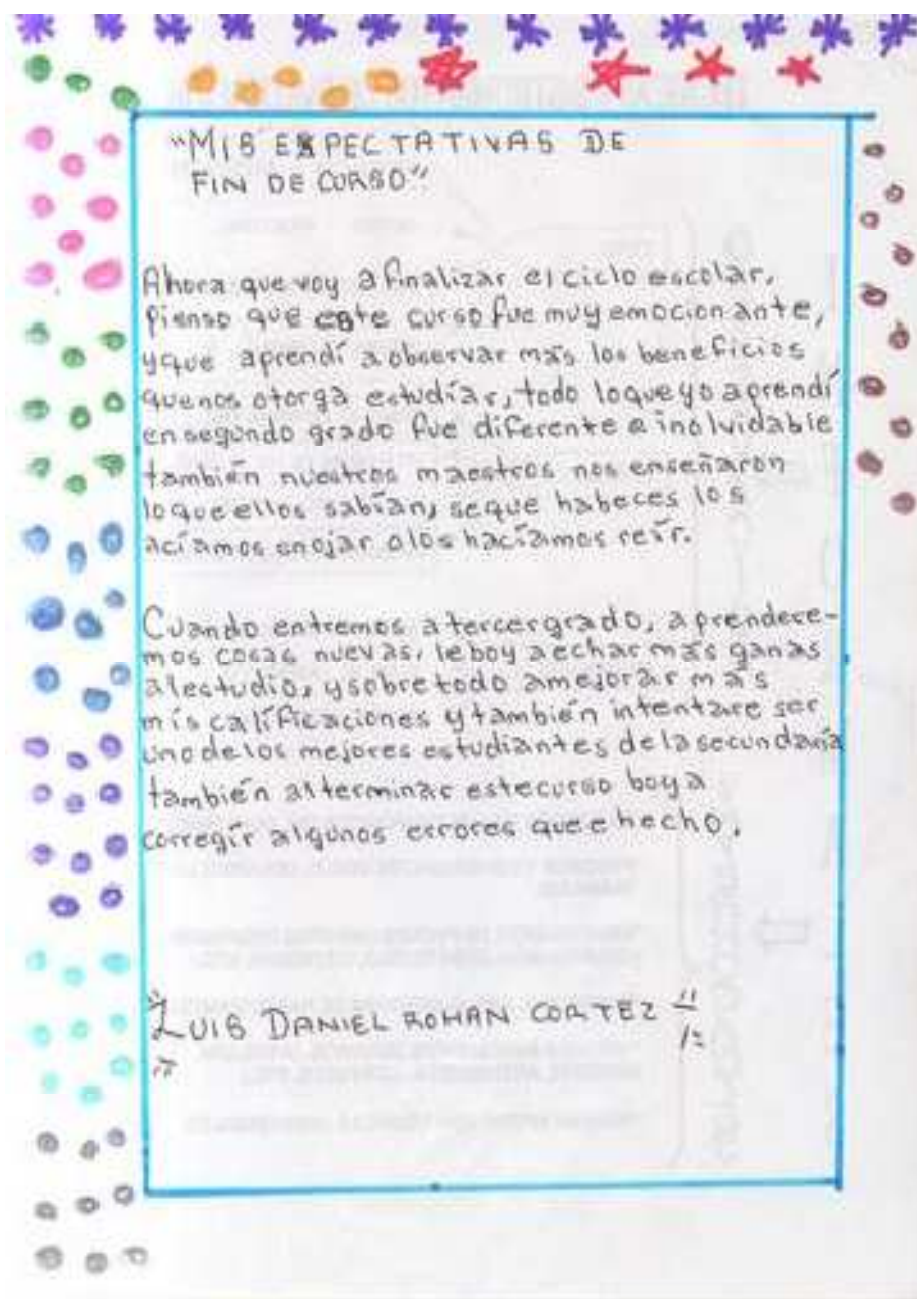 "MIS EXPECTATIVAS DE
FIN DE CURSO"
Ahora que voy a finalizar el ciclo escolar,
pienso que este curso fue muy emocionante,
y que aprendí a observar más los beneficios
que nos otorga estudíar, todo lo que yo aprendí
en segundo grado fue diferente e inolvidable
también nuestros maestros nos enseñaron
lo que ellos sabían, se que habeces los
acíamos enojar o los hacíamos reír.
Cuando entremos a tercer grado, aprendere-
mos cosas nuevas, le boy a echar más ganas
al estudio, y sobre todo a mejorar más
mis calificaciones y también intentare ser
uno de los mejores estudiantes de la secundaría
también al terminar este curso boy a
corregir algunos errores que e hecho.
"LUIS DANIEL ROMAN CORTEZ"